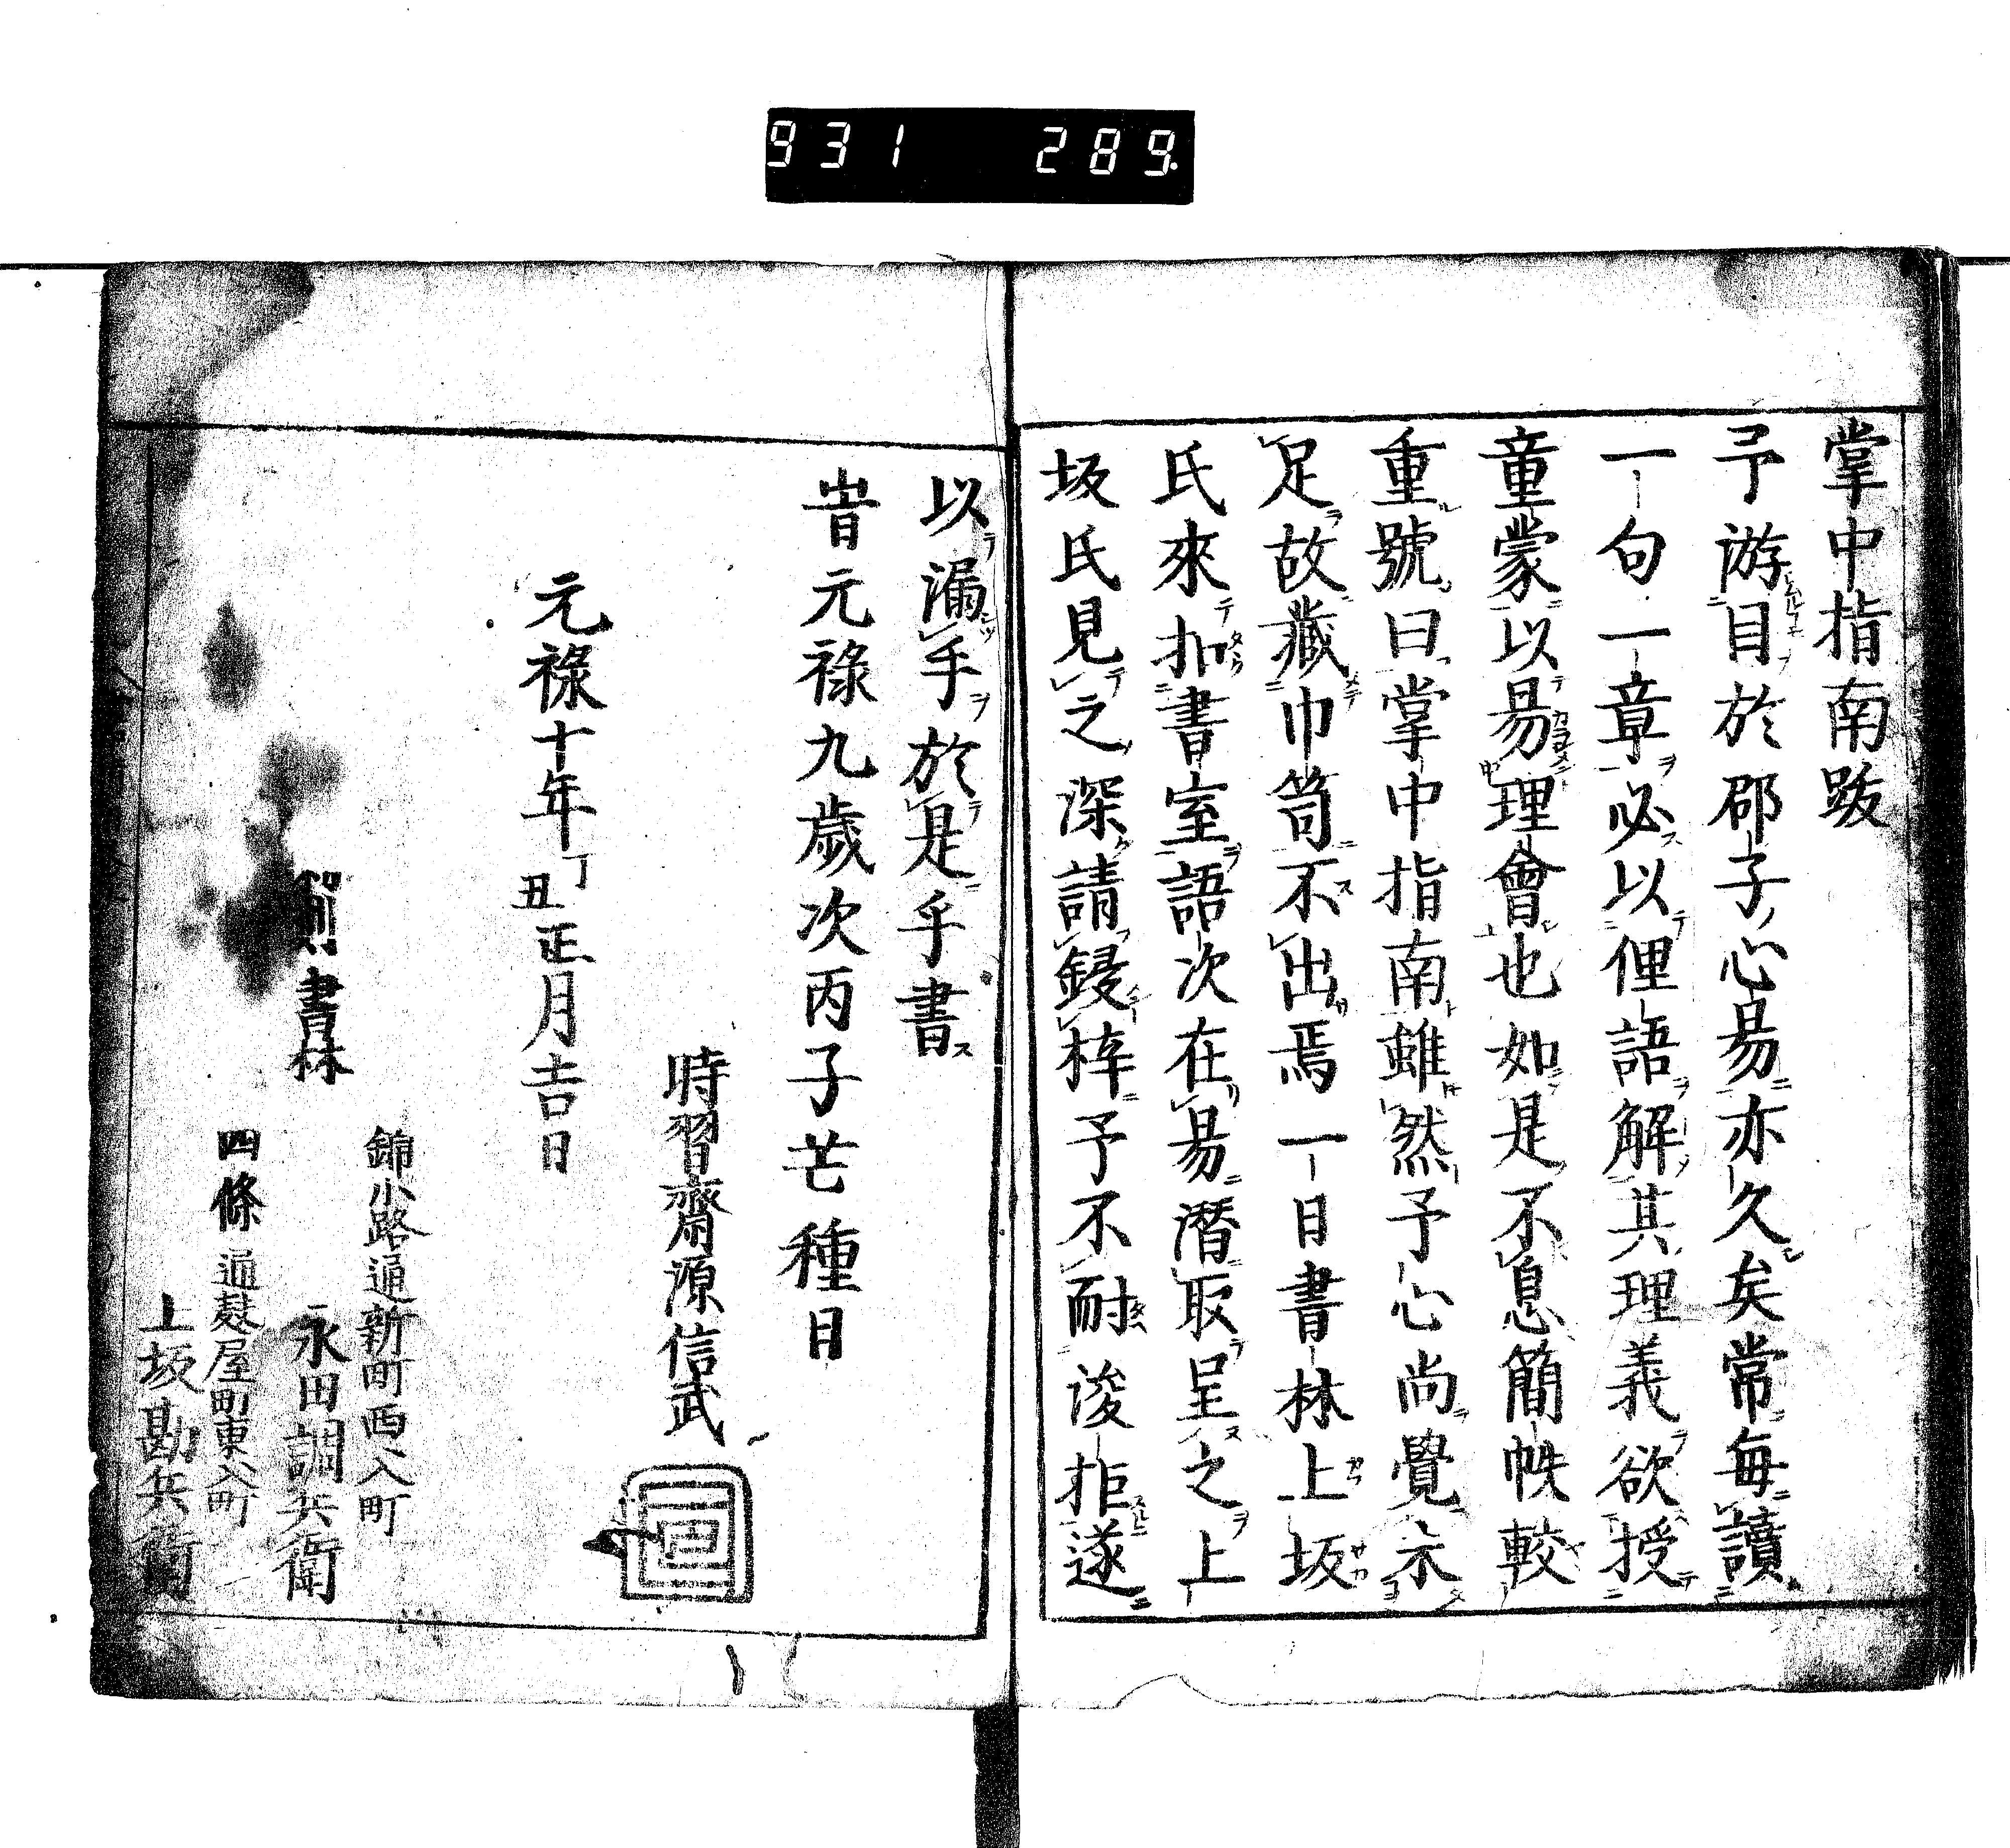 931 289
掌中指南跋
予游目於邵子心昜亦久矣常毎讀
一句一章必以俚語解其理義欲授
童蒙以昜理會也如是不息簡帙較
重號曰掌中指南雖然予心尚覺未
足故藏巾笥不出焉一日書林上坂
氏來扣書室語次在易潛取呈之上
坂氏見之深請鋟梓予不耐浚拒遂
以漏手於是乎書
旹元祿九歲次丙子芒種日
時習齋源信武
元祿十年丁丑正月吉日
書林
錦小路通新町西入町
永田調兵衛
四條通麩屋町東入町
上坂勘兵衛